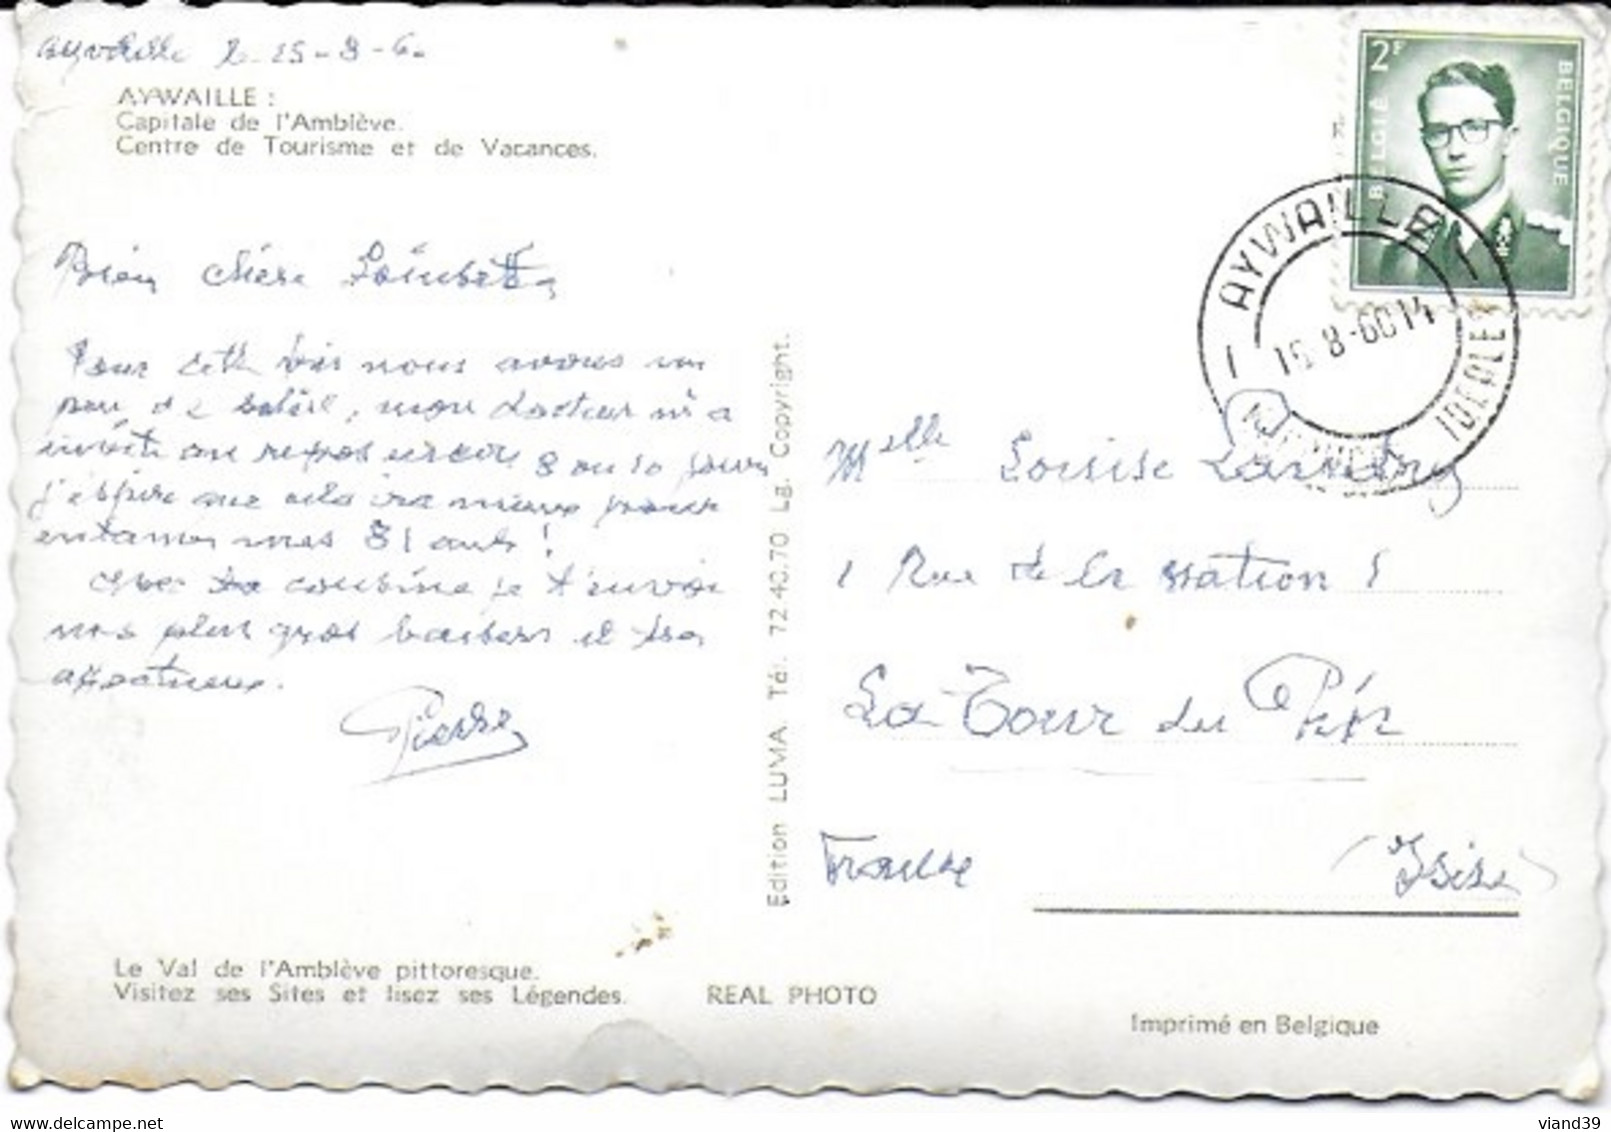 Aywaille le 15-8-60
AYWAILLE :
Capitale de l'Amblève.
Centre de Tourisme et de Vacances.
2F
BELGIË
BELGIQUE
AYWAILLE
8-60 14
Bien chère
Pour cette fois nous avons un
peu de soleil, mon docteur m'a
invité au repos encore 8 ou 10 jours
j'espère que cela ira mieux pour
entamer mes 81 ans !
Avec la combine je t'envoie
mes plus gros baisers et très
affectueux.
Pierre
Edition LUMA. Tél. 72.40.70 Lg. Copyright.
Melle Louise
1 Rue de la station 1
La Tour du Pin
France (Isère)
Le Val de l'Amblève pittoresque.
Visitez ses Sites et lisez ses Légendes.
REAL PHOTO
Imprimé en Belgique
viand39